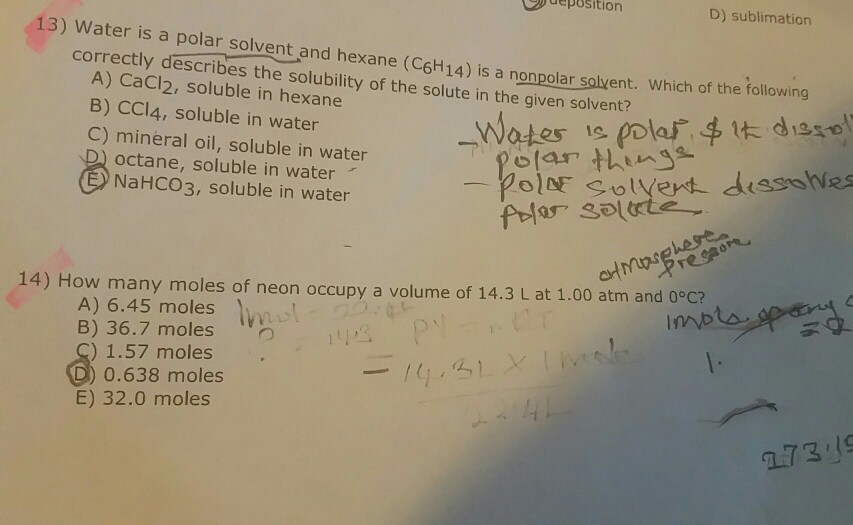 deposition
D) sublimation
13) Water is a polar solvent and hexane (C6H14) is a nonpolar solvent. Which of the following
correctly describes the solubility of the solute in the given solvent?
A) CaCl2, soluble in hexane
B) CCl4, soluble in water
C) mineral oil, soluble in water
D) octane, soluble in water
E) NaHCO3, soluble in water
- Water is polar, $ it dissol
polar things
- Polar solvent dissolves
polar solute
atmosphere
pressure
14) How many moles of neon occupy a volume of 14.3 L at 1.00 atm and 0°C?
A) 6.45 moles
B) 36.7 moles
C) 1.57 moles
D) 0.638 moles
E) 32.0 moles
1mol = 22.4L
? = 14.3
PV = nRT
= 14.3L X 1 mole
22.4L
1 mole any
1.
273.15